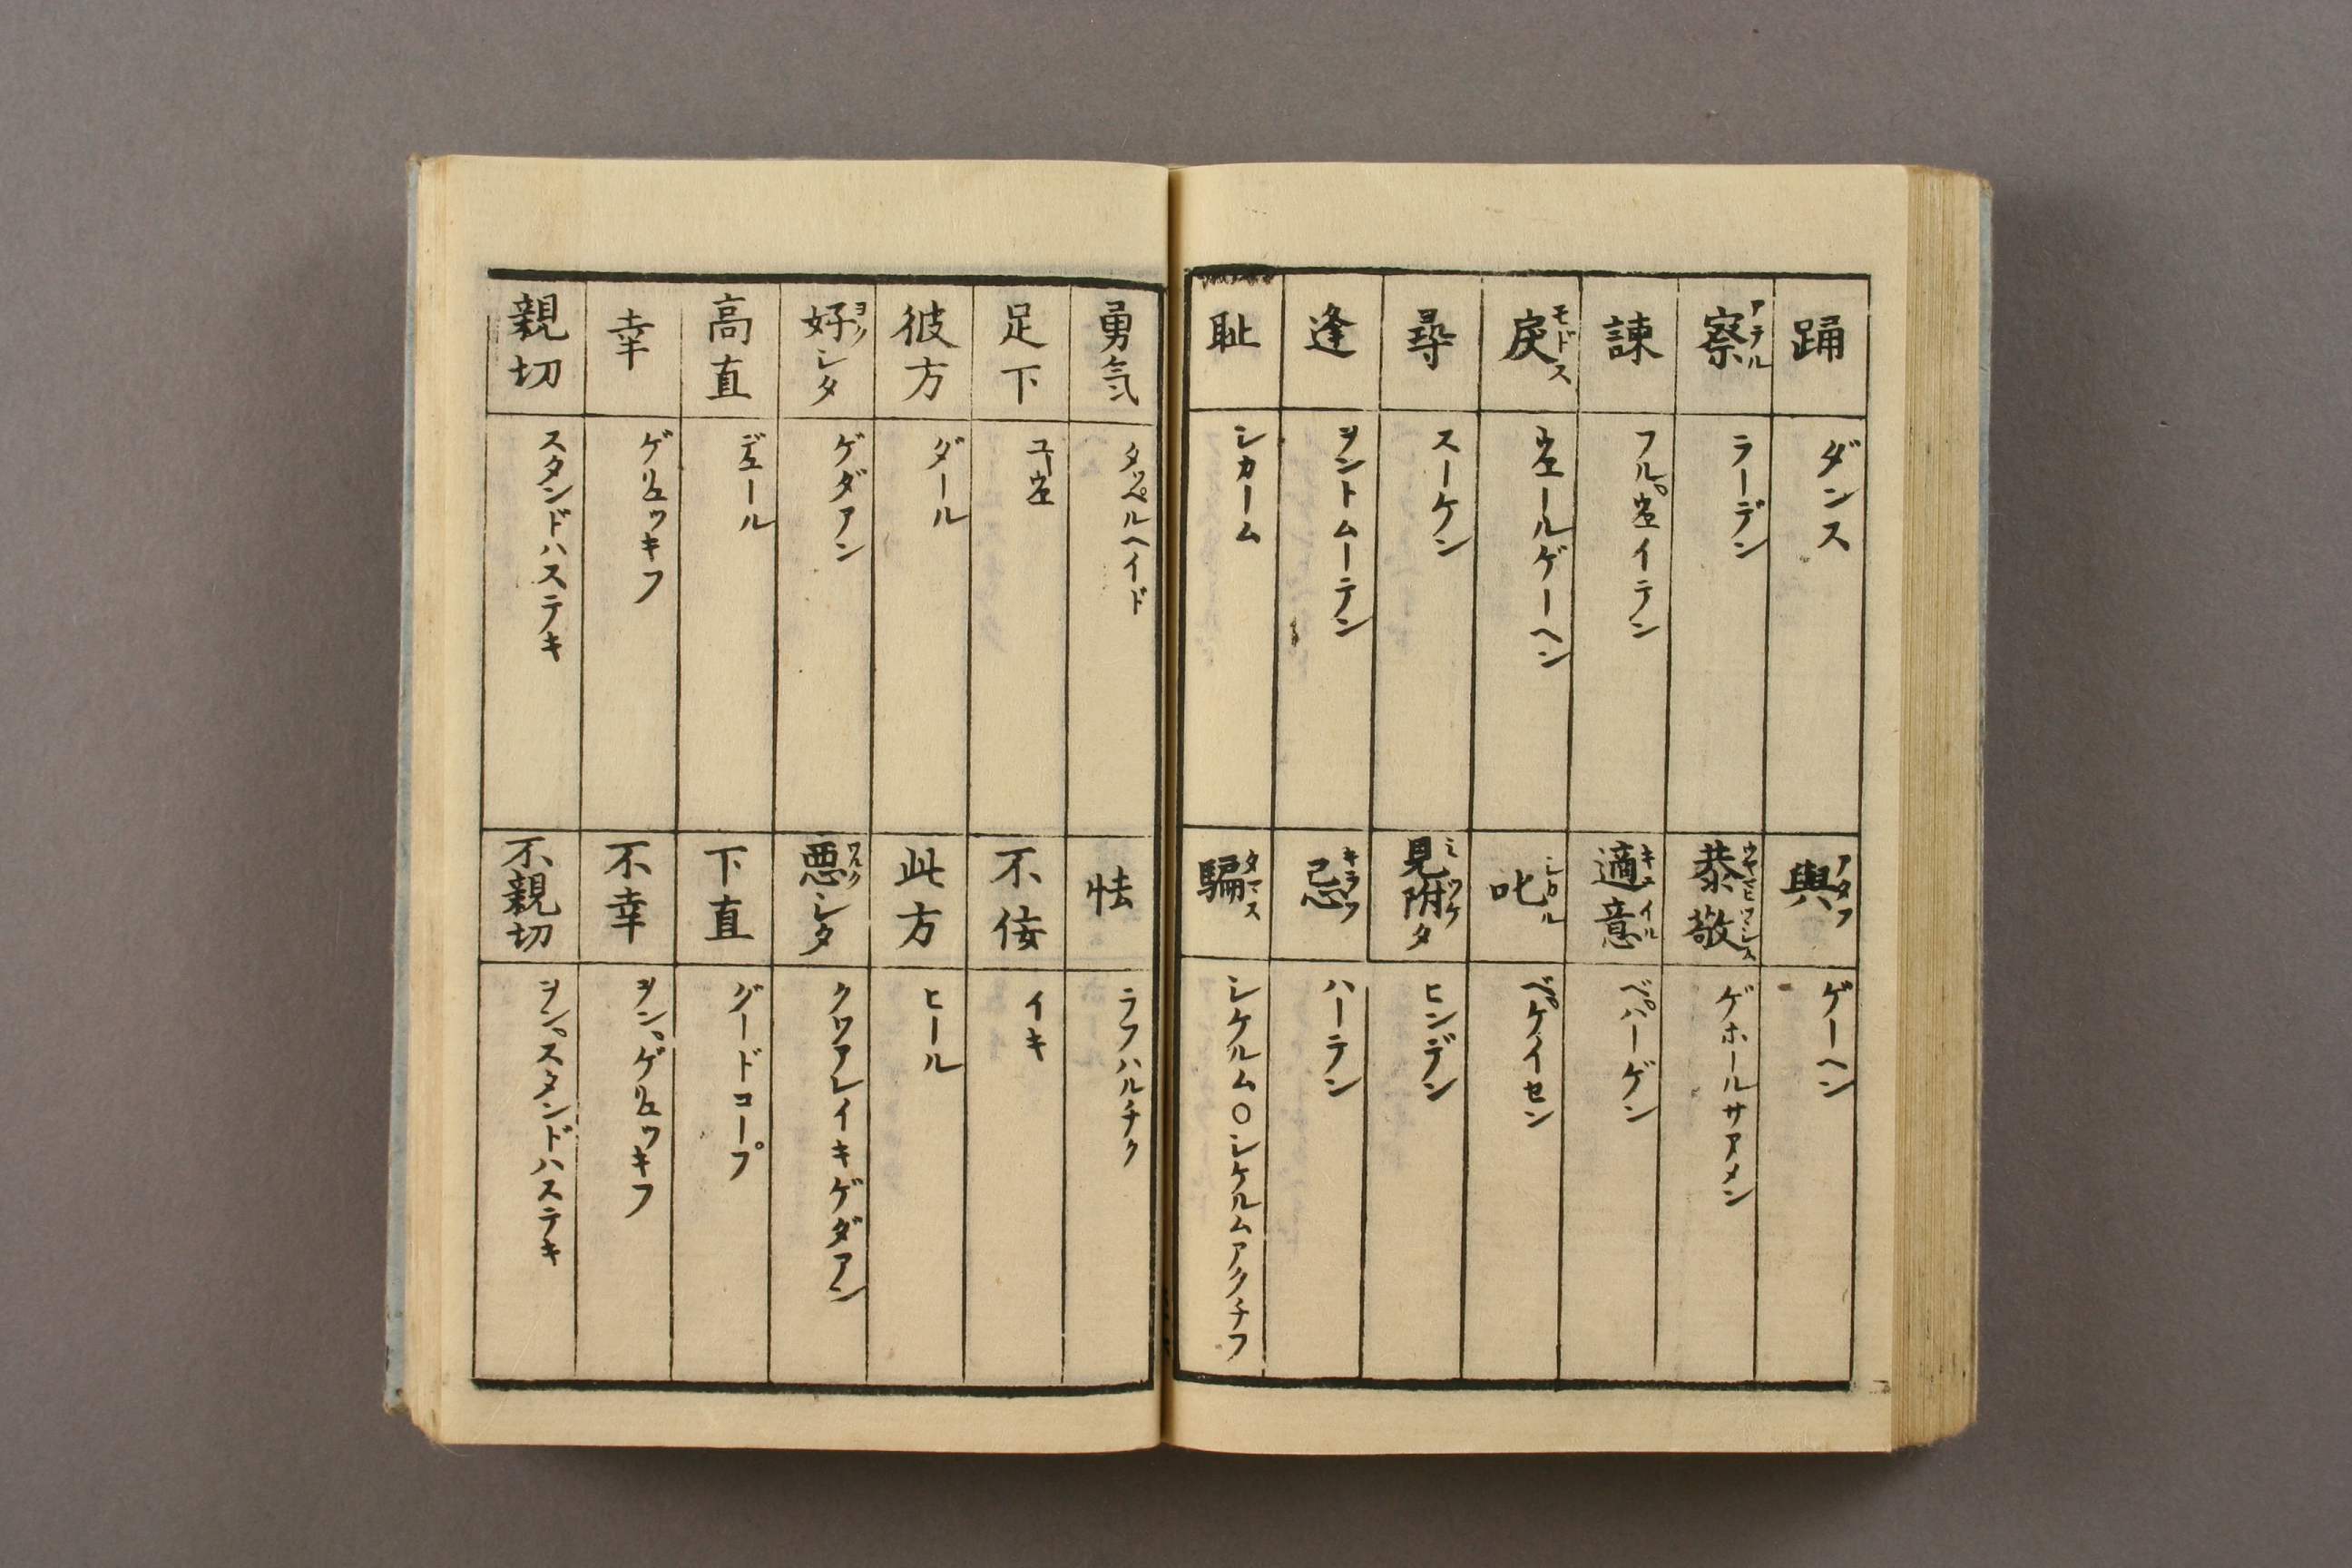 踊 ダンス 與 アタフ ゲーヘン
察 アテル ラーデン 恭敬 ウヤマヒツシンス ゲホールサアメン
諌 フル。ウエイテン 適意 キニイル ベ。パーゲン
戻 モドス ウエールゲーヘン 叱 シロル ベ。ケイセン
尋 スーケン 見附タ ミツケ ヒンデン
逢 ヲントムーテン 忌 キラフ ハーテン
耻 シカーム 騙 タマス シケルム〇シケルムアクチフ
勇気 タッペルヘイド 怯 ラフハルチク
足下 ユーウエ 不侫 イキ
彼方 ダール 此方 ヒール
好シタ ヨク ゲダアン 悪シタ ワルク クワアレイキゲダアン
高直 デエール 下直 グードコープ
幸 ゲリユッキフ 不幸 ヲン。ゲリユッキフ
親切 スタンドハステキ 不親切 ヲン。スタンドハステキ